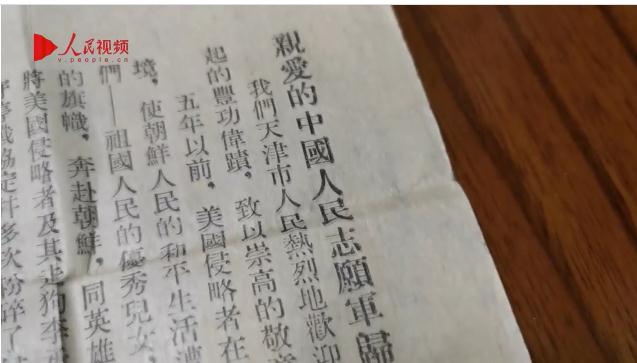 人民视频
v.people.cn
親愛的中國人民志願軍歸
我們天津市人民熱烈地歡迎
起的豐功偉蹟，致以崇高的敬意
五年以前，美國侵略者在
境，使朝鮮人民的和平生活遭
們——祖國人民的優秀兒女，
的旗幟，奔赴朝鮮，同英雄
將美國侵略者及其走狗李
停戰協定并多次粉碎了